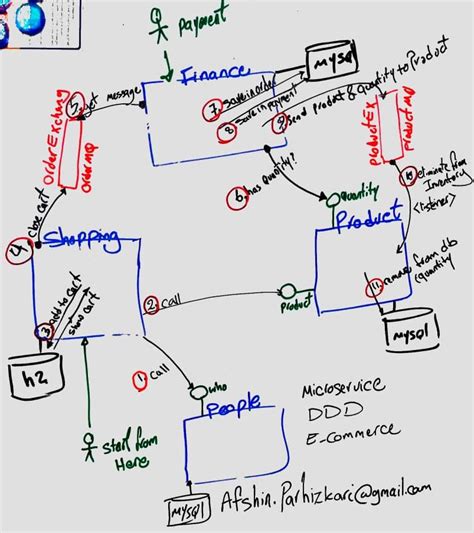 payment
Finance
mysql
5. get message
7 save in order
8 save in payment
9 Send product & quantity to Product
Order Exchang
Order MQ
product EX
product MQ
10 eliminate from
Inventory
<listener>
6. has quantity?
quantity
Product
4 close cart
Shopping
3 add to cart
show cart
2. call
product
11. remove from db
(quantity
mysql
h2
1. call
who
people
start from
Here
mysql
Microservice
DDD
E-commerce
Afshin.Parhizkari@gmail.com